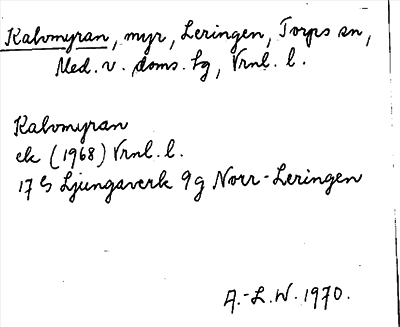 Kalvmyran, myr, Leringen, Torps sn,
Med. v. doms. hg, Vrnl. l.
Kalvmyran
ek (1968) Vrnl. l.
17 G Ljungaverk 9 g Norr-Leringen
A.-L.W. 1970.